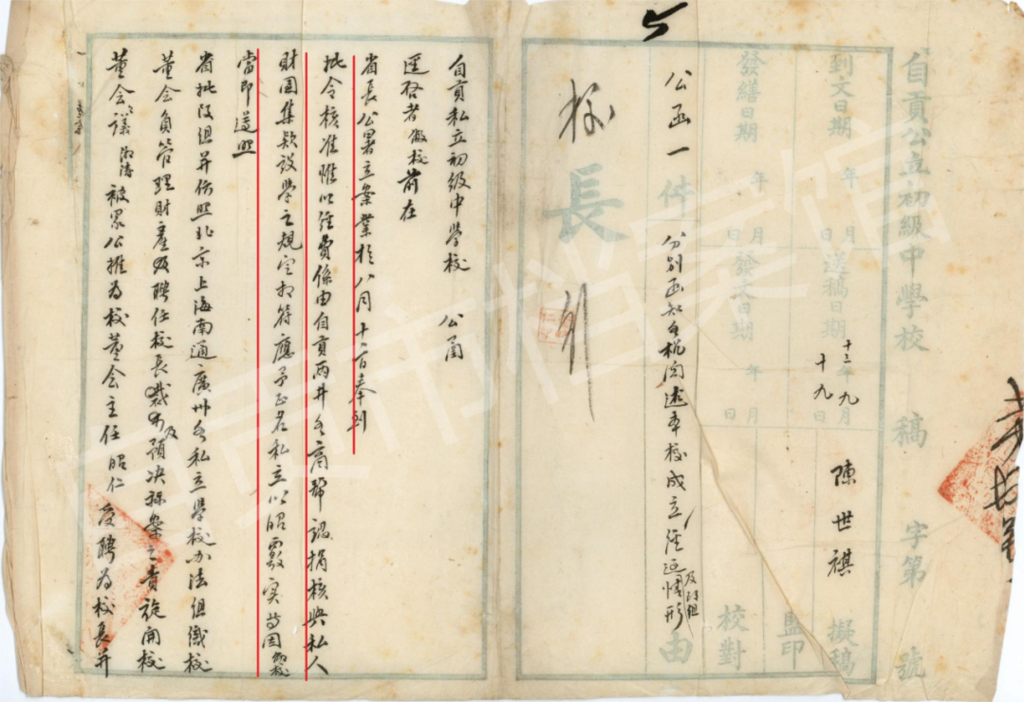 自貢公立初級中學校 稿 字第 號
到文日期 年 月 日 送稿日期 十三年九月十九日 陳世祺 擬稿
發繕日期 年 月 日 發文日期 年 月 日 監印 校對
公函一件 分別函知各機関述本校成立經過及改組情形 由
校長 劉
自貢私立初級中學校 公函
逕啓者敝校前在
省長公署立案業於八月十二日奉到
批令核准惟以經費係由自貢兩井各商號認捐核與私人
財團集欵設學之規定相符應予正名私立以昭覈實等因敝校
當即遵照
省批改組并仿照北京上海南通廣州各私立學校办法組織校
董會負管理財產及聘任校長裁可及預决祘案之責旋開校
董會議 被眾公推為校董会主任昭仁 受聘為校長并